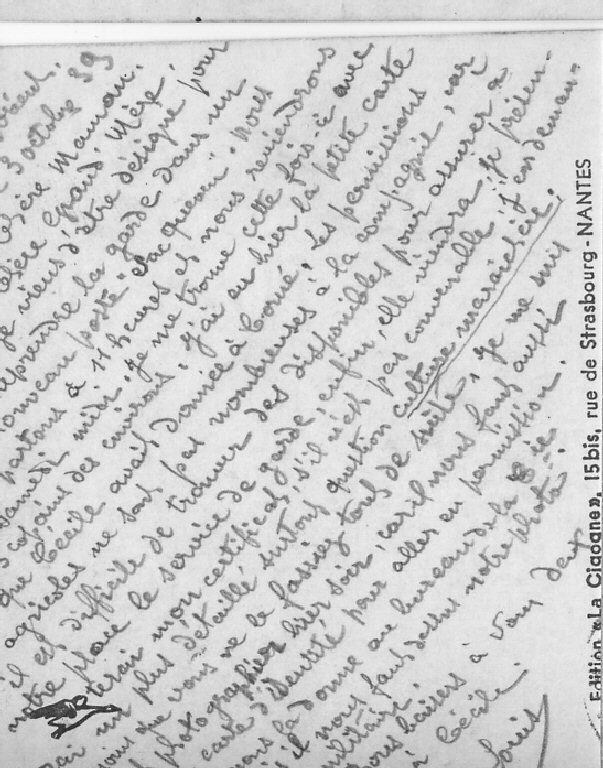 3 octobre 39
Chère Maman,
Chère Grand'Mère
Je viens d'être désigné pour
reprendre la garde dans un
nouveau poste "Jacqueseu". Nous
partons à 11 heures et nous reviendrons
samedi midi. Je me trouve cette fois-ci avec
3 copains des environs. J'ai eu hier la petite carte
que Cécile avait donnée à Coué. Les permissions
agricoles ne sont pas nombreuses à la compagnie, car
il est difficile de trouver des disponibles pour assurer à
notre place le service de garde, enfin, elle viendra. Je présen-
terai mon certificat, s'il n'est pas convenable j'en deman-
derai un plus détaillé surtout question culture maraîchère,
que vous me le fassiez tout de suite. Je me suis
photographier hier soir, car il nous faut aussi
carte d'identité pour aller en permission.
la donne au bureau de la
il nous faut dessus notre photo.
bons baisers à vous deux
Cécile.
Louis
Edition «La Cigogne», 15bis, rue de Strasbourg - NANTES